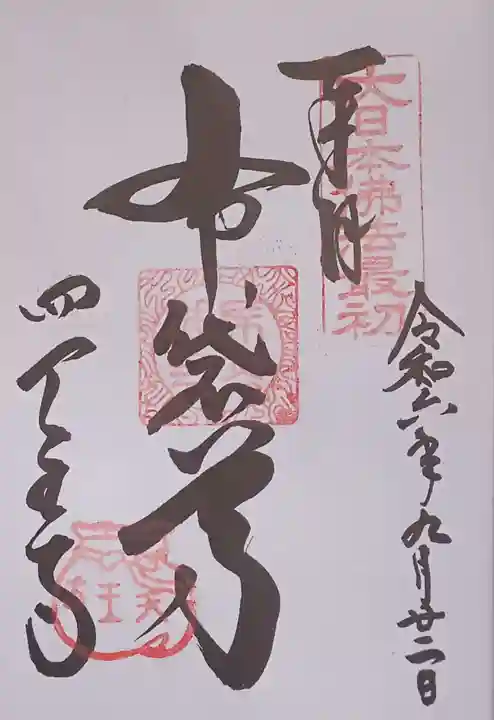 奉拝
大日本佛法最初
令和六年九月廿二日
布袋尊
四天王寺